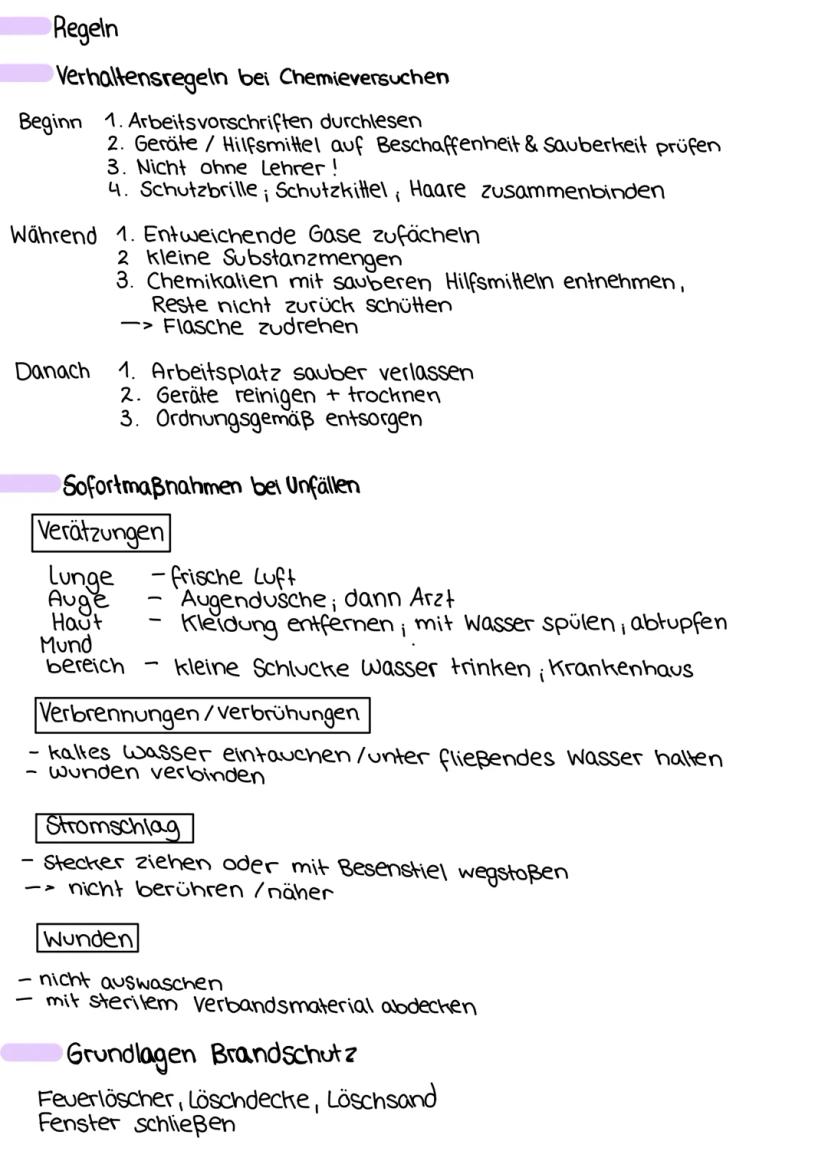 Regeln
Verhaltensregeln bei Chemieversuchen
Beginn 1. Arbeitsvorschriften durchlesen
2. Geräte / Hilfsmittel auf Beschaffenheit & Sauberkeit prüfen
3. Nicht ohne Lehrer !
4. Schutzbrille ; Schutzkittel , Haare zusammenbinden
Während 1. Entweichende Gase zufächeln
2 kleine Substanzmengen
3. Chemikalien mit sauberen Hilfsmitteln entnehmen,
Reste nicht zurück schütten
—> Flasche zudrehen
Danach 1. Arbeitsplatz sauber verlassen
2. Geräte reinigen + trocknen
3. Ordnungsgemäß entsorgen
Sofortmaßnahmen bei Unfällen
Verätzungen
Lunge - frische Luft
Auge - Augendusche ; dann Arzt
Haut - Kleidung entfernen ; mit Wasser spülen ; abtupfen
Mund
bereich - kleine Schlucke Wasser trinken ; Krankenhaus
Verbrennungen / Verbrühungen
- kaltes Wasser eintauchen / unter fließendes Wasser halten
- Wunden verbinden
Stromschlag
- Stecker ziehen oder mit Besenstiel wegstoßen
—> nicht berühren / näher
Wunden
- nicht auswaschen
- mit sterilem Verbandsmaterial abdecken
Grundlagen Brandschutz
Feuerlöscher, Löschdecke, Löschsand
Fenster schließen